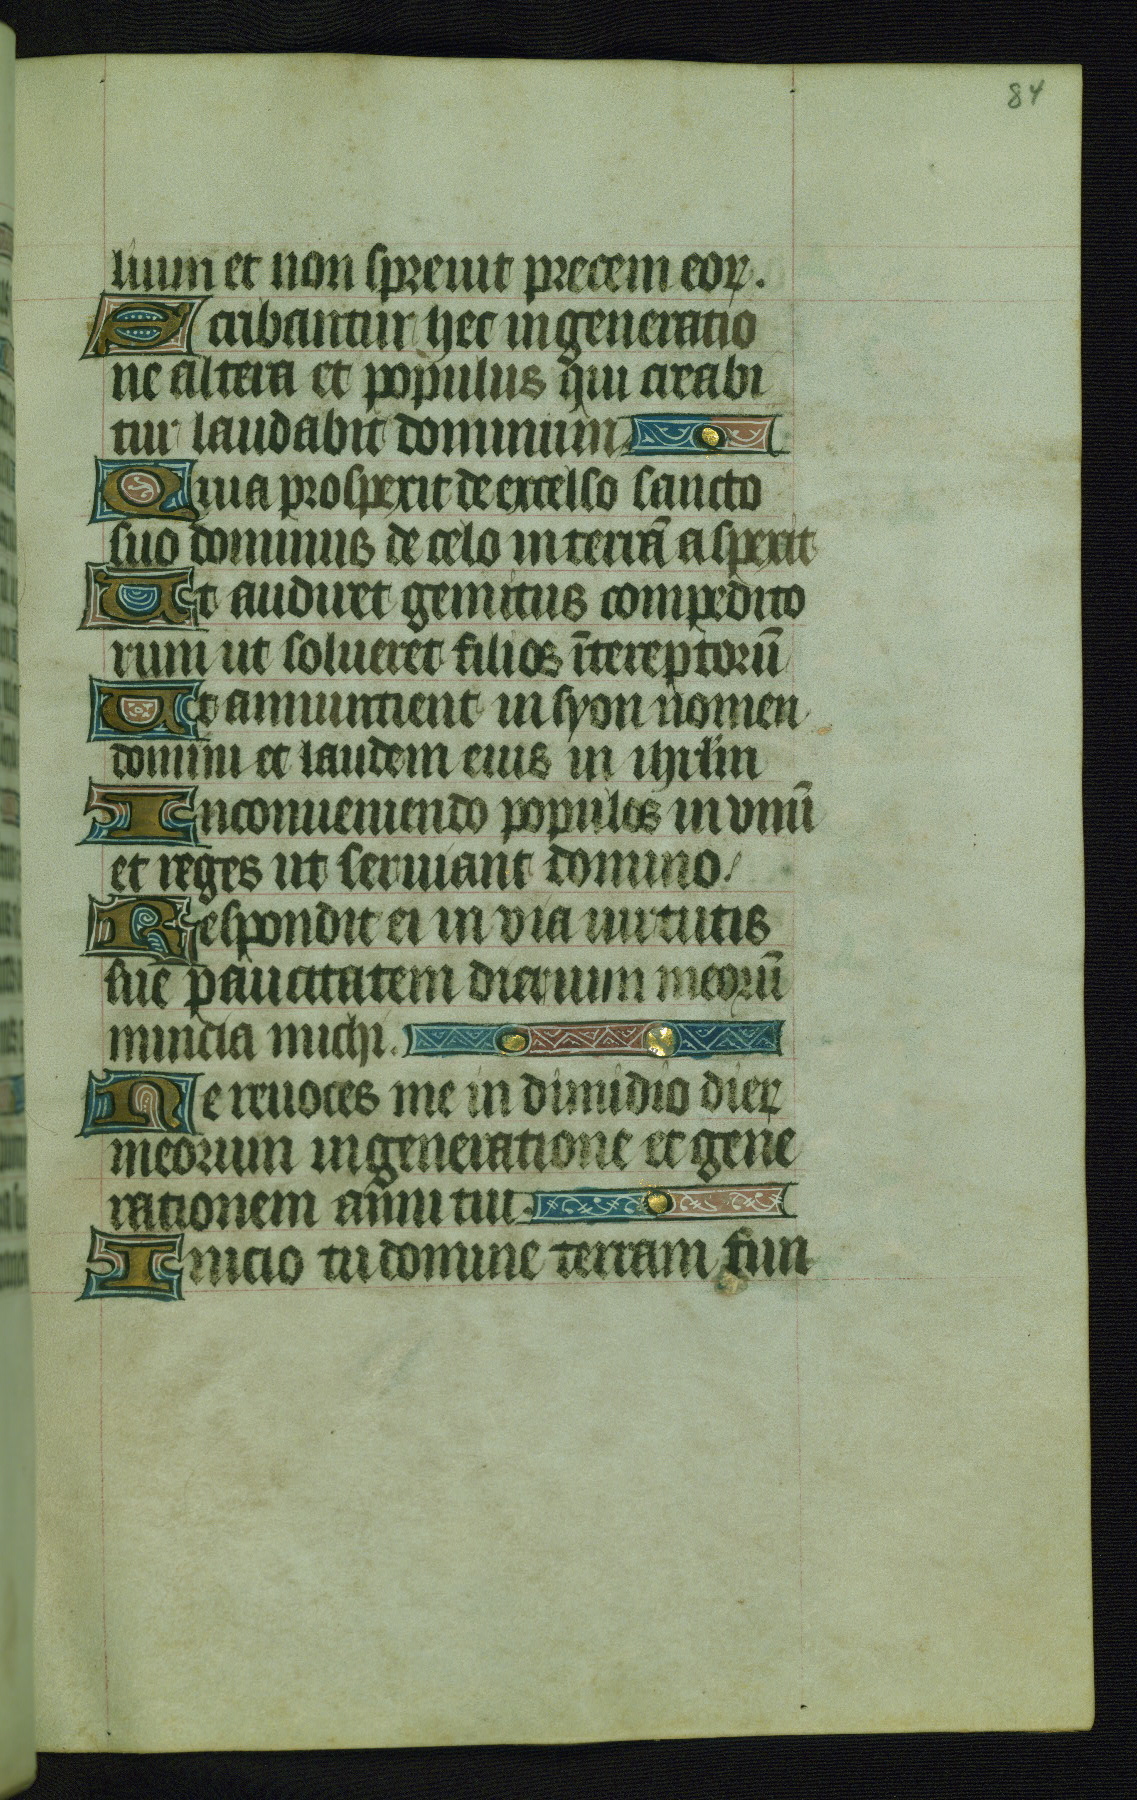 84
lium et non spreuit precem eoꝝ.
Scribantur hec in generatio
ne altera et populus qui creabi
tur laudabit dominum
Quia prospexit de excelso sancto
suo dominus de celo in terrā aspexit
Ut audiret gemitus compedito
rum ut solueret filios īteremptorū
Ut annuntient in syon nomen
domini et laudem eius in ihrl̄m
In conueniendo populos in vnū
et reges ut seruiant domino.
Respondit ei in via uirtutis
sue paucitatem dierum meorū
nuncia michi.
Ne reuoces me in dimidio dieꝝ
meorum in generatione et gene
rationem anni tui.
Inicio tu domine terram fun